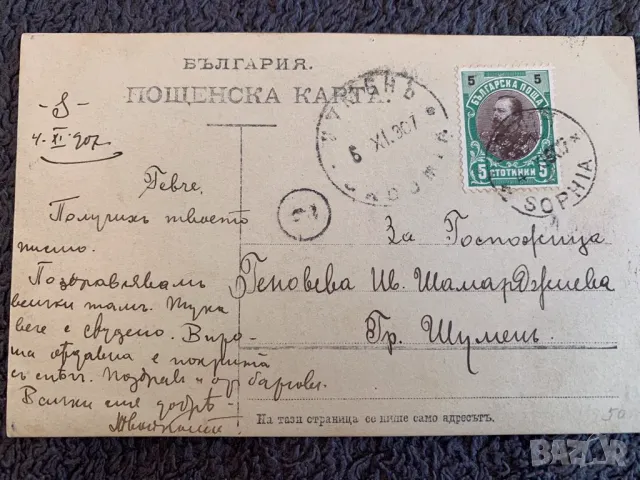 БЪЛГАРИЯ.
ПОЩЕНСКА КАРТА.
4. XI 907
Гевче,
Получихъ твоето
писмо.
Поздравлявамъ
всички тамъ. Тука
вече е студено.
е покрита
съ снѣгъ. Поздрави и отъ
Всички сме добрѣ
6 XI.907
БЪЛГАРСКА ПОЩА
5 5
5 СТОТИНКИ 5
SOPHIA
За Госпожица
Геновева Ив. Шамарджиева
Гр. Шуменъ.
На тази страница се пише само адресътъ.
50
BAZAR.bg